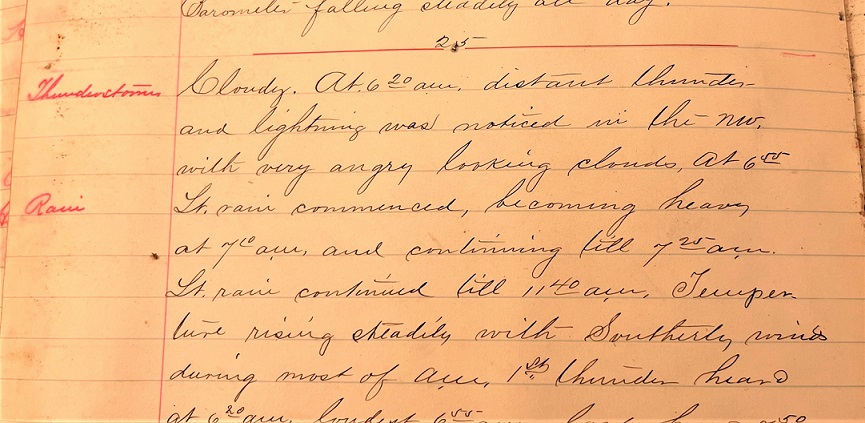 Barometer falling steadily all day.
25
Thunderstorms
Cloudy. At 6 20 am, distant thunder
and lightning was noticed in the NW.
with very angry looking clouds, At 6 55
Rain
Lt. rain commenced, becoming heavy
at 7 10 am, and continuing till 7 25 am.
Lt. rain continued till 11 40 am, Temper-
ture rising steadily with Southerly winds
during most of am, 1st thunder heard
at 6 20 am, loudest 6 55 am, 7 50